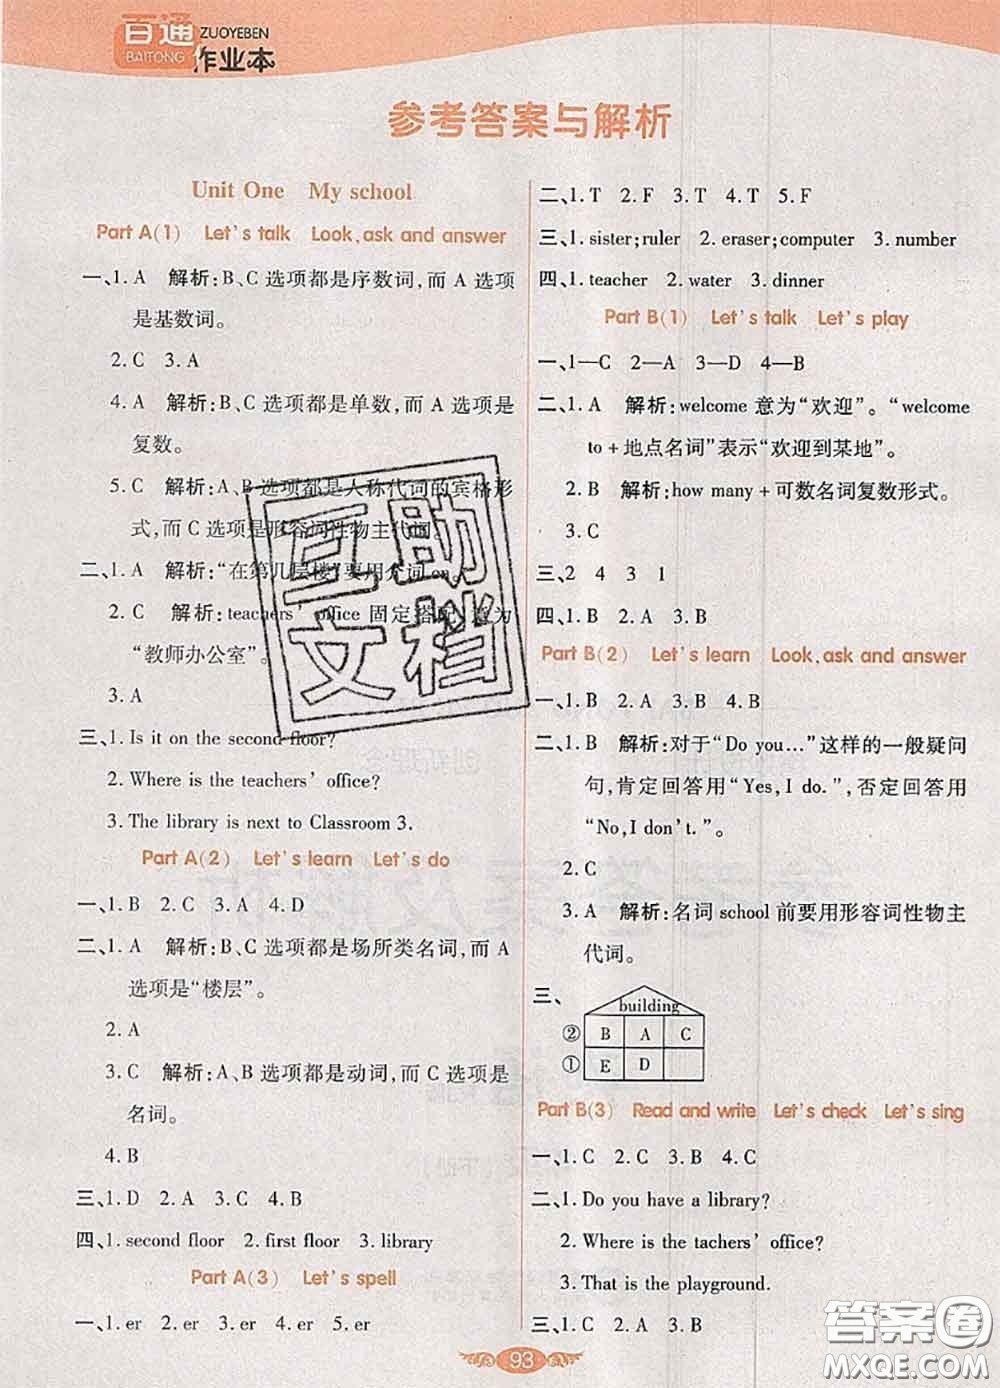 百通
BAITONG
ZUOYEBEN
作业本
参考答案与解析
Unit One My school
Part A(1) Let's talk Look, ask and answer
一、1. A 解析:B、C 选项都是序数词,而 A 选项
是基数词。
2. C 3. A
4. A 解析:B、C 选项都是单数,而 A 选项是
复数。
5. C 解析:A、B 选项都是人称代词的宾格形
式,而 C 选项是形容词性物主代词。
二、1. A 解析:“在第几层楼”要用介词 on。
2. C 解析:teachers' office 固定搭配,意为
“教师办公室”。
3. A
三、1. Is it on the second floor?
2. Where is the teachers' office?
3. The library is next to Classroom 3.
Part A(2) Let's learn Let's do
一、1. B 2. C 3. A 4. D
二、1. A 解析:B、C 选项都是场所类名词,而 A
选项是“楼层”。
2. A
3. C 解析:A、B 选项都是动词,而 C 选项是
名词。
4. B
三、1. D 2. A 3. C 4. B
四、1. second floor 2. first floor 3. library
Part A(3) Let's spell
一、1. er 2. er 3. er 4. er 5. er
二、1. T 2. F 3. T 4. T 5. F
三、1. sister;ruler 2. eraser;computer 3. number
四、1. teacher 2. water 3. dinner
Part B(1) Let's talk Let's play
一、1—C 2—A 3—D 4—B
二、1. A 解析:welcome 意为“欢迎”。“welcome
to +地点名词”表示“欢迎到某地”。
2. B 解析:how many +可数名词复数形式。
3. C
三、2 4 3 1
四、1. B 2. A 3. B
Part B(2) Let's learn Look, ask and answer
一、1. B 2. A 3. B 4. B
二、1. B 解析:对于“Do you…”这样的一般疑问
句,肯定回答用“Yes, I do.”,否定回答用
“No, I don't.”。
2. C
3. A 解析:名词 school 前要用形容词性物主
代词。
三、
building
② B A C
① E D
Part B(3) Read and write Let's check Let's sing
一、1. C 2. C 3. B 4. C
二、1. Do you have a library?
2. Where is the tachers' office?
3. That is the playground.
三、1. C 2. A 3. B
93
互助
文档
答案圈
MXQE.COM